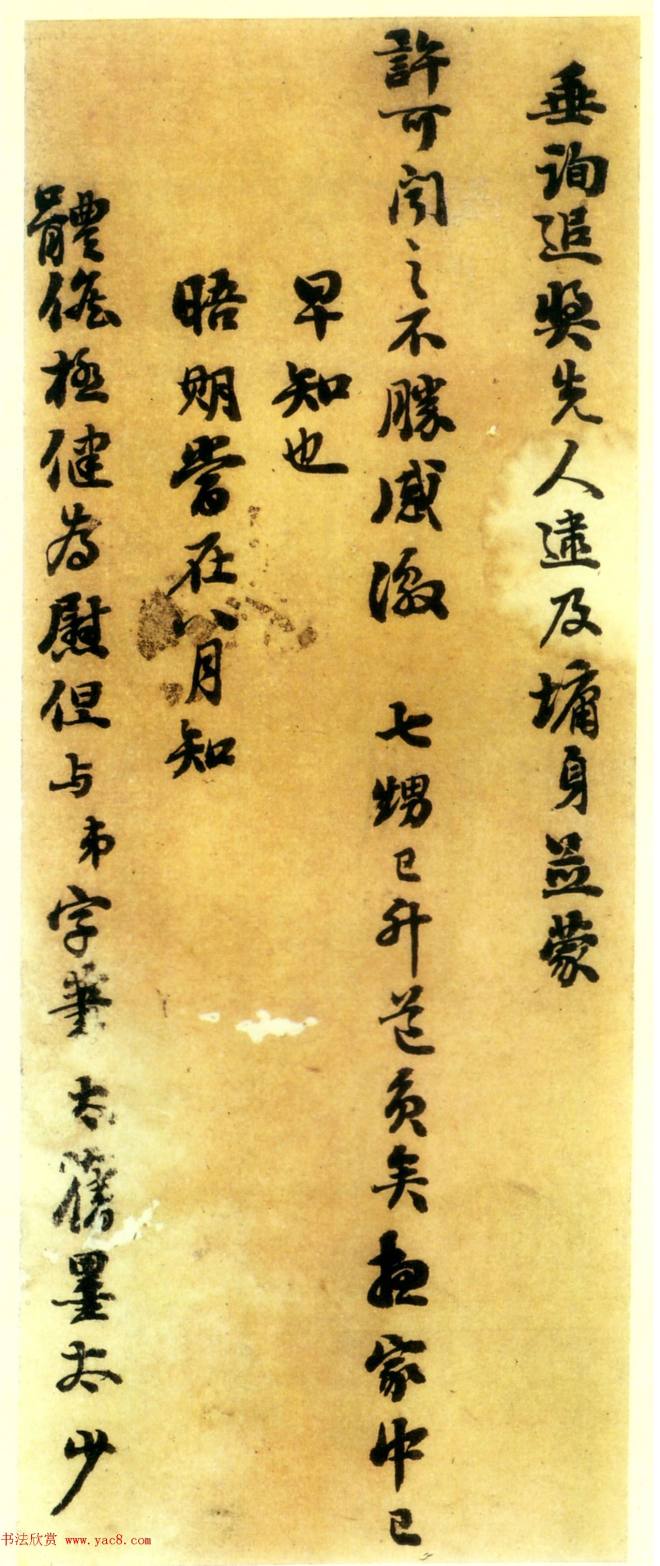 垂詢追奬先人逮及墉身並蒙
許可聞之不勝感激 七甥已升邑矣想家中已
早知也
晤期當在八月知
體儋極健為慰但与弟字筆太舊墨太少
书法欣赏 www.yac8.com